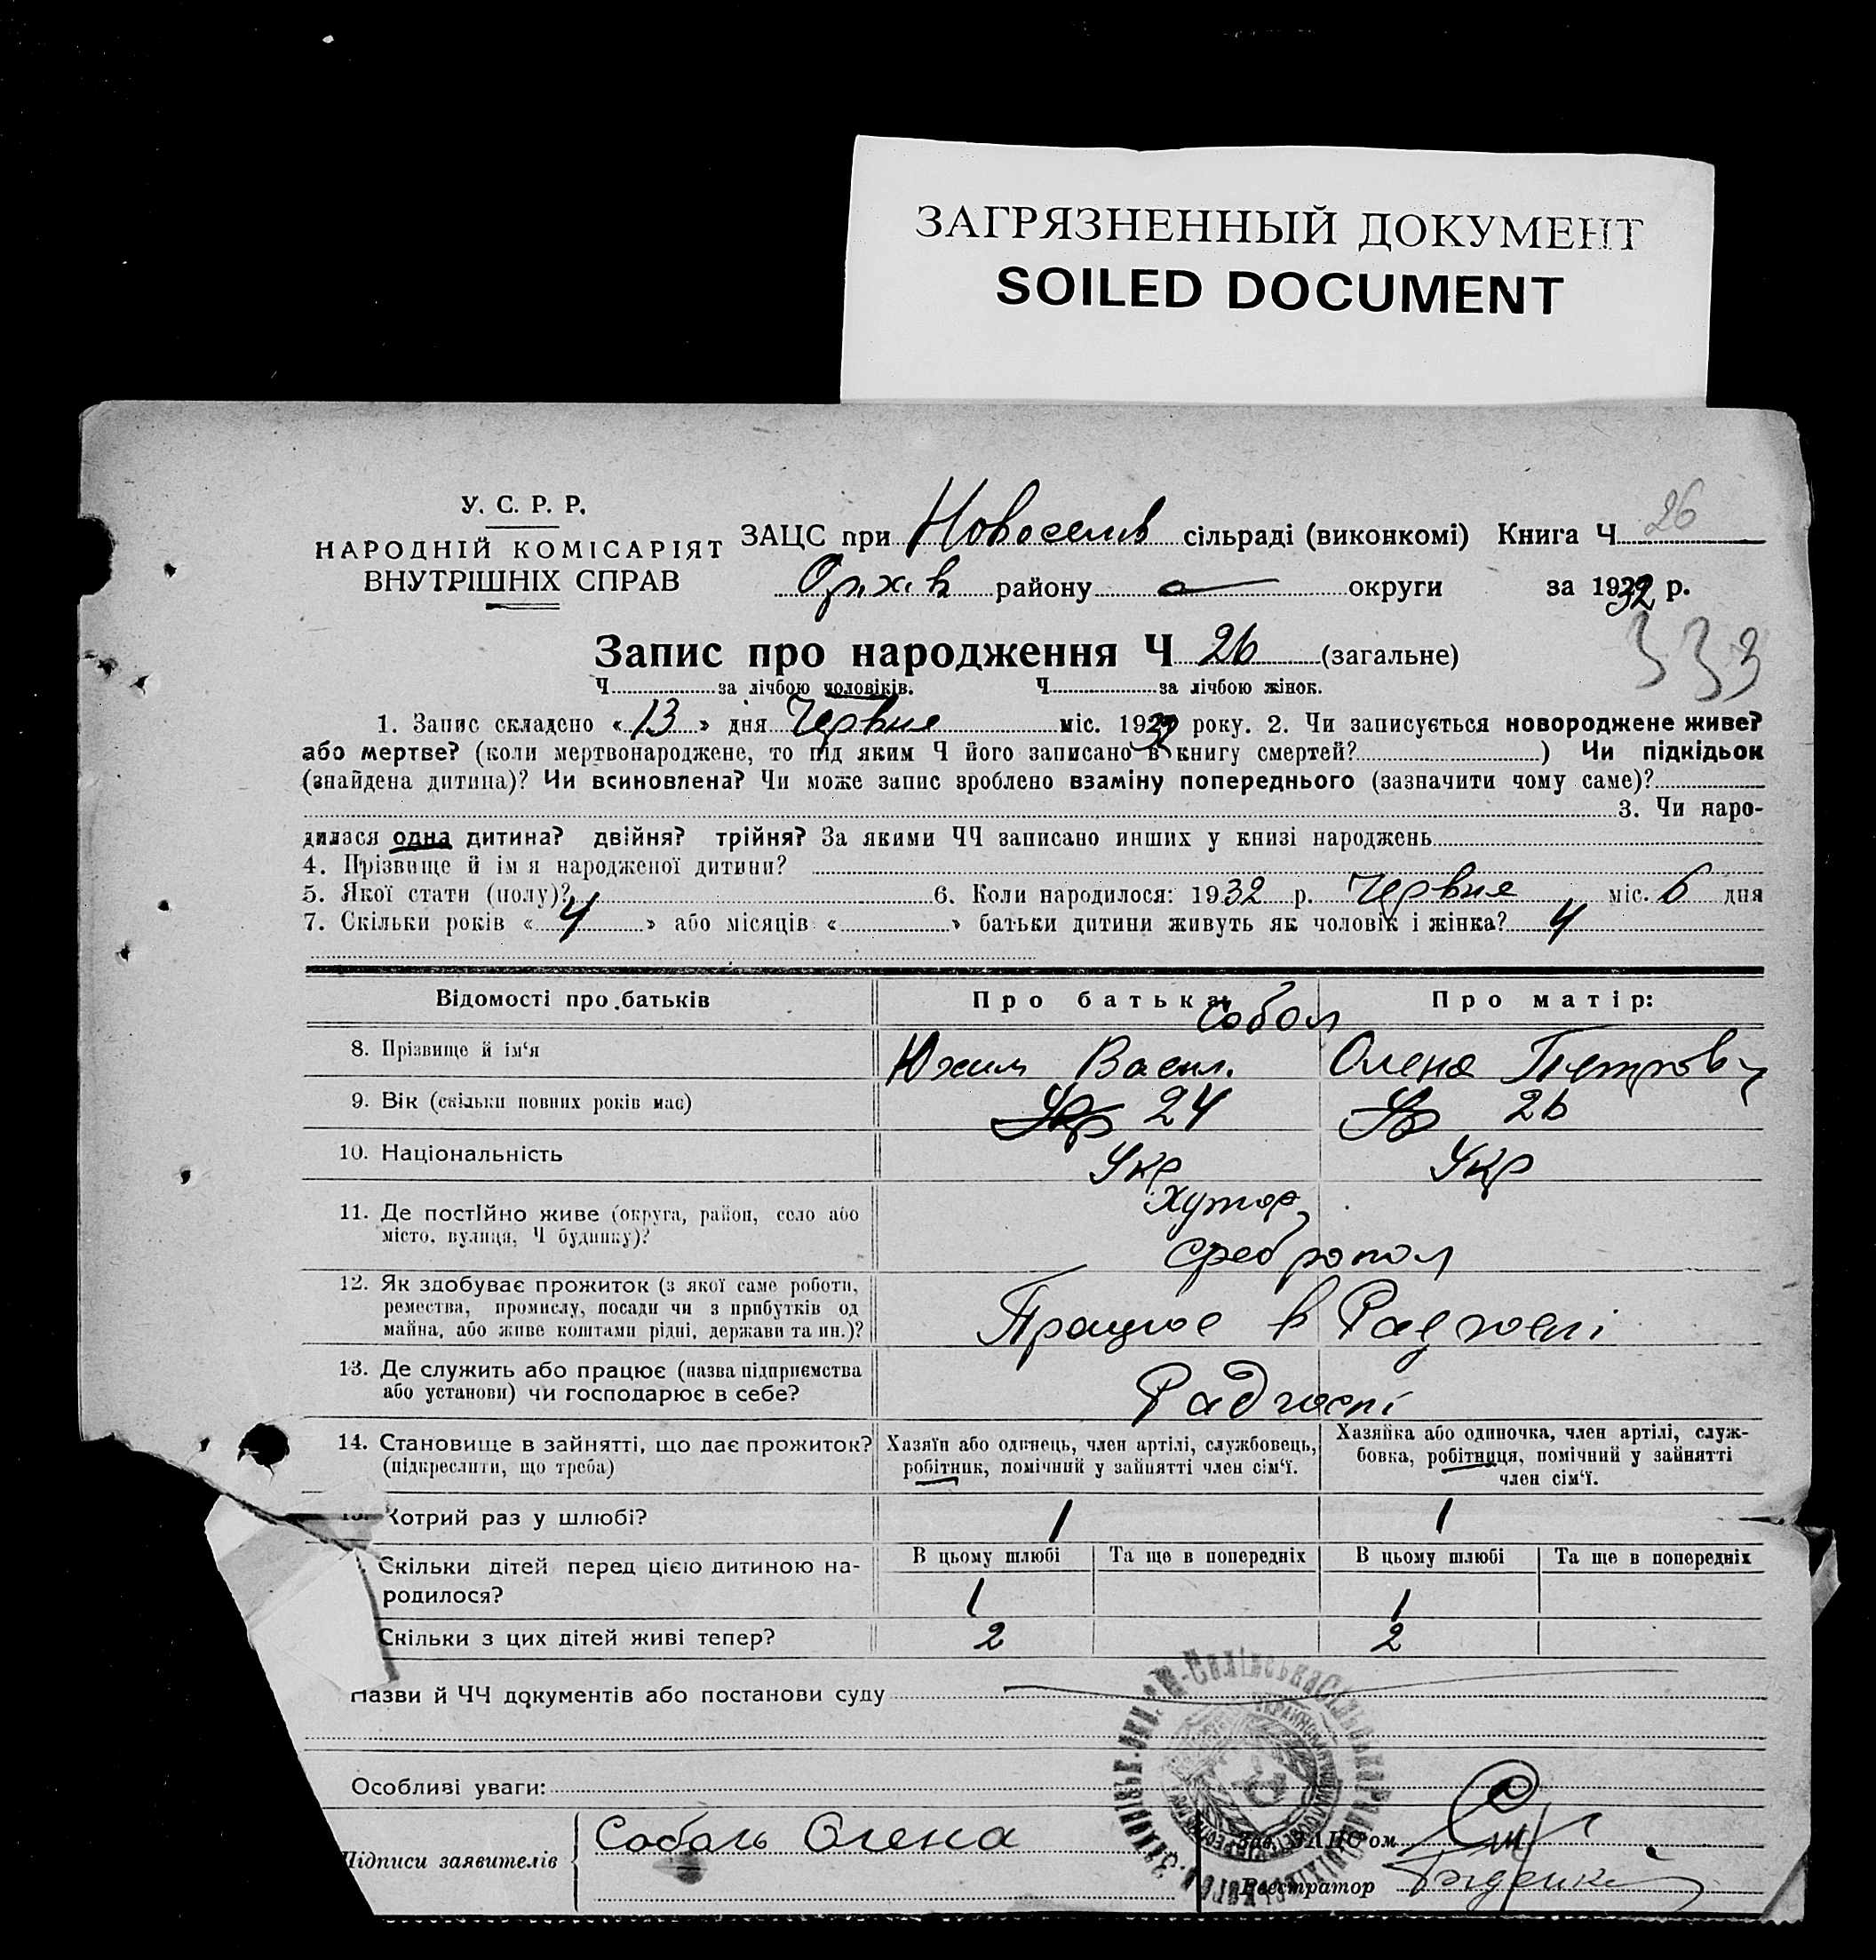 ЗАГРЯЗНЕННЫЙ ДОКУМЕНТ
SOILED DOCUMENT
У. С. Р. Р.
НАРОДНІЙ КОМІСАРІЯТ
ВНУТРІШНІХ СПРАВ
ЗАЦС при Новоселив сільраді (виконкомі) Книга Ч 26
Оріхів району округи за 1932 р.
333
Запис про народження Ч 26 (загальне)
Ч за лічбою чоловіків. Ч за лічбою жінок.
1. Запис складено « 13 » дня Червня міс. 1932 року. 2. Чи записується новороджене живе?
або мертве? (коли мертвонароджене, то під яким Ч його записано в книгу смертей? ) Чи підкідьок
(знайдена дитина)? Чи всиновлена? Чи може запис зроблено взаміну попереднього (зазначити чому саме)?
3. Чи наро-
дилася одна дитина? двійня? трійня? За якими ЧЧ записано инших у книзі народжень
4. Прізвище й імя народженої дитини?
5. Якої стати (полу)? 6. Коли народилося: 1932 р. Червня міс. 6 дня
7. Скільки років « 4 » або місяців « » батьки дитини живуть як чоловік і жінка? 4
Відомості про батьків Про батька: Про матір:
Собол
8. Прізвище й ім'я Юхим Васил. Олена Петровн
9. Вік (скільки повних років має) Укр 24 Ук 26
10. Національність Укр Укр
11. Де постійно живе (округа, район, село або
місто, вулиця, Ч будинку)?
хутор
Сребропол
12. Як здобуває прожиток (з якої саме роботи,
ремества, промислу, посади чи з прибутків од
майна, або живе коштами рідні, держави та ин.)?
Працює в Радгоспі
13. Де служить або працює (назва підприємства
або установи) чи господарює в себе?
Радгоспі
14. Становище в зайнятті, що дає прожиток?
(підкреслити, що треба)
Хазяїн або одинець, член артілі, службовець,
робітник, помічний у зайнятті член сім'ї.
Хазяйка або одиночка, член артілі, служ-
бовка, робітниця, помічний у зайнятті
член сім'ї.
15. Котрий раз у шлюбі? 1 1
Скільки дітей перед цією дитиною на-
родилося?
В цьому шлюбі Та ще в попередніх В цьому шлюбі Та ще в попередніх
1 1
Скільки з цих дітей живі тепер? 2 2
Назви й ЧЧ документів або постанови суду
Особливі уваги:
Підписи заявителів Соболь Олена
Зав. ЗАЦС'ом
Реєстратор